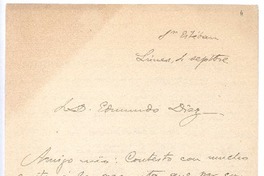 Sn Estéban
Lúnes, 4 septbre
S. D. Edmundo Diaz
Amigo mio: Contesto con mucho